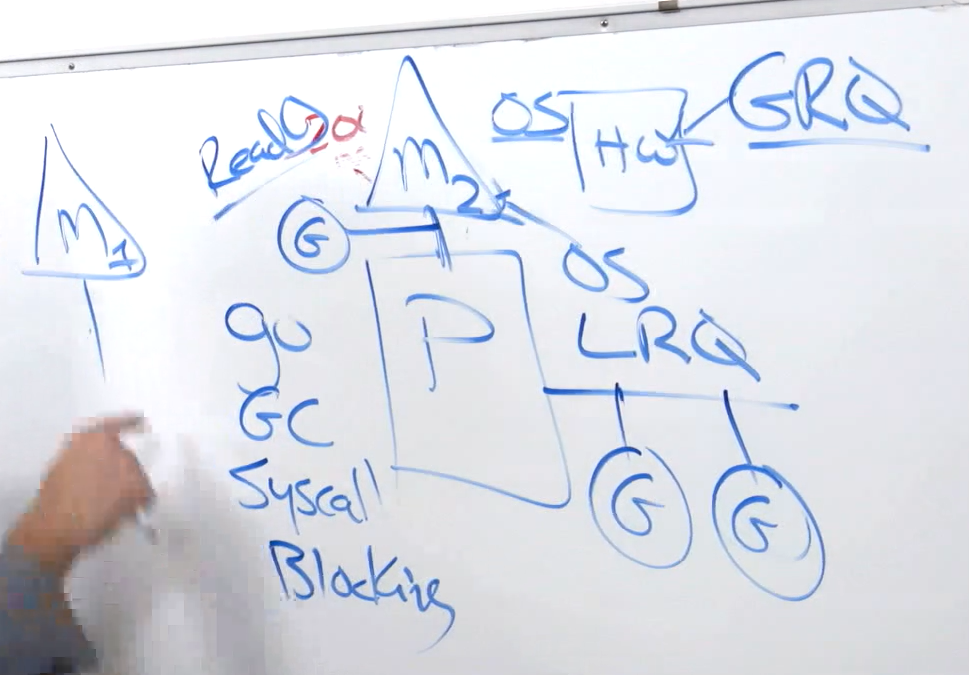 M1
Read()
M2
OS
HW
GRQ
G
OS
P
LRQ
go
GC
Syscall
Blocking
G
G